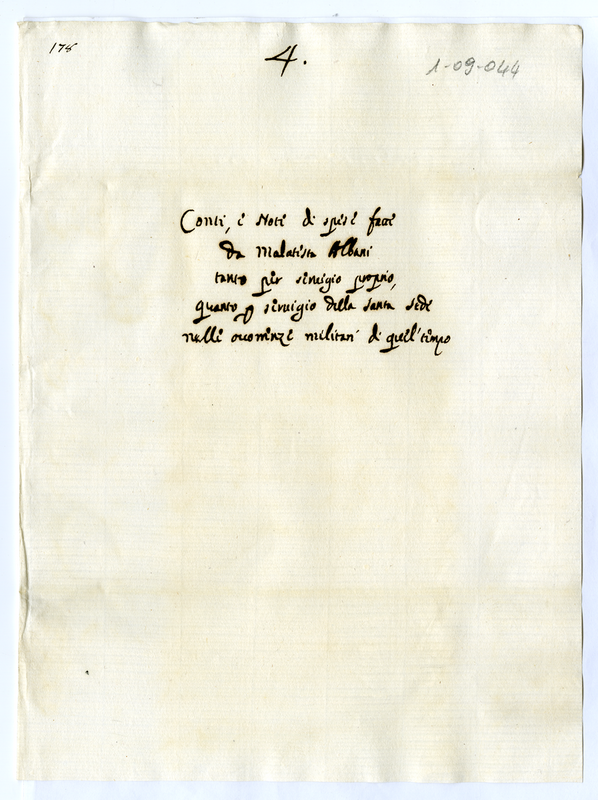 178
4.
1-09-044
Conti, e Note di spese fatte
da Malatesta Albani
tanto per servigio proprio,
quanto p servigio della Santa Sede
nelle occorrenze militari di quel tempo